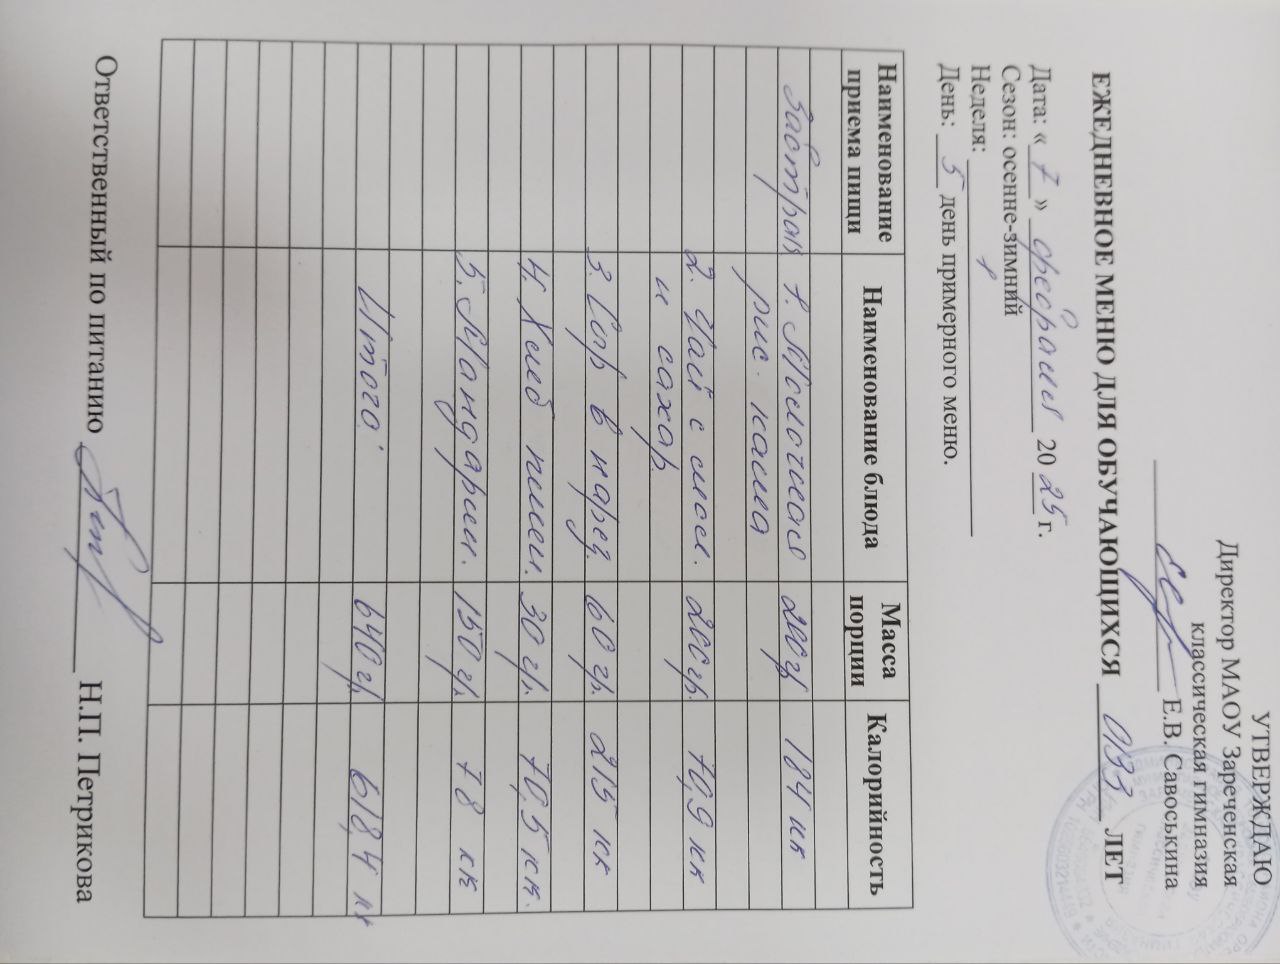 УТВЕРЖДАЮ
Директор МАОУ Зареченская
классическая гимназия
Е.В. Савоськина
ЕЖЕДНЕВНОЕ МЕНЮ ДЛЯ ОБУЧАЮЩИХСЯ ОВЗ ЛЕТ
Дата: « 7 » февраля 20 25 г.
Сезон: осенне-зимний
Неделя: 1
День: 5 день примерного меню.
Наименование приема пищи Наименование блюда Масса порции Калорийность
Завтрак 1. Молочная 200 гр 184 кк
рис. каша
2. Чай с мол. 200 гр. 70,9 кк
и сахар.
3. Сыр в нарез. 60 гр. 215 кк
4. Хлеб пшен. 30 гр. 70,5 кк.
5. Мандарин. 150 гр. 78 кк
Итого: 640 гр. 618,4 кк
Ответственный по питанию Н.П. Петрикова